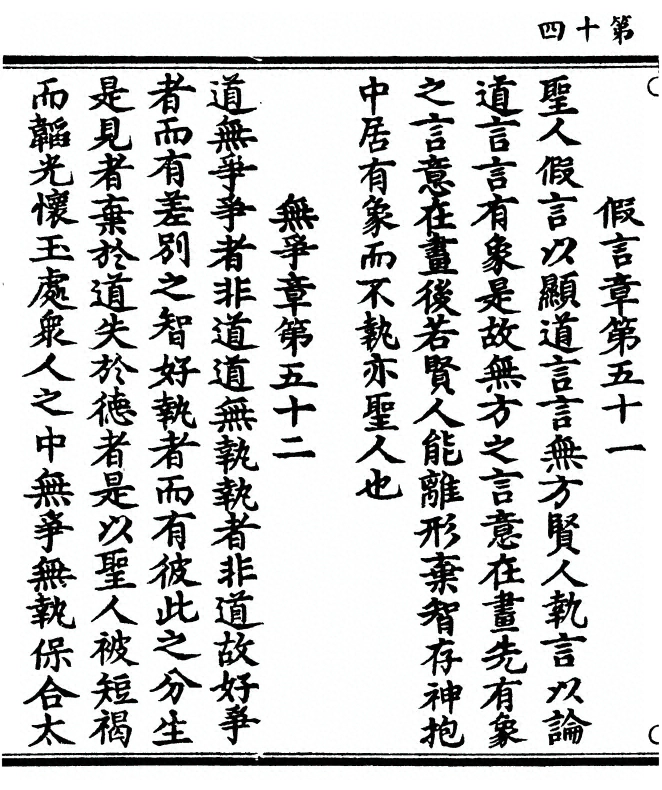 第十四
假言章第五十一
聖人假言以顯道言言無方賢人執言以論
道言言有象是故無方之言意在畫先有象
之言意在畫後若賢人能離形棄智存神抱
中居有象而不執亦聖人也
無爭章第五十二
道無爭爭者非道道無執執者非道故好爭
者而有差別之智好執者而有彼此之分生
是見者棄於道失於德者是以聖人被短褐
而韜光懷玉處眾人之中無爭無執保合太